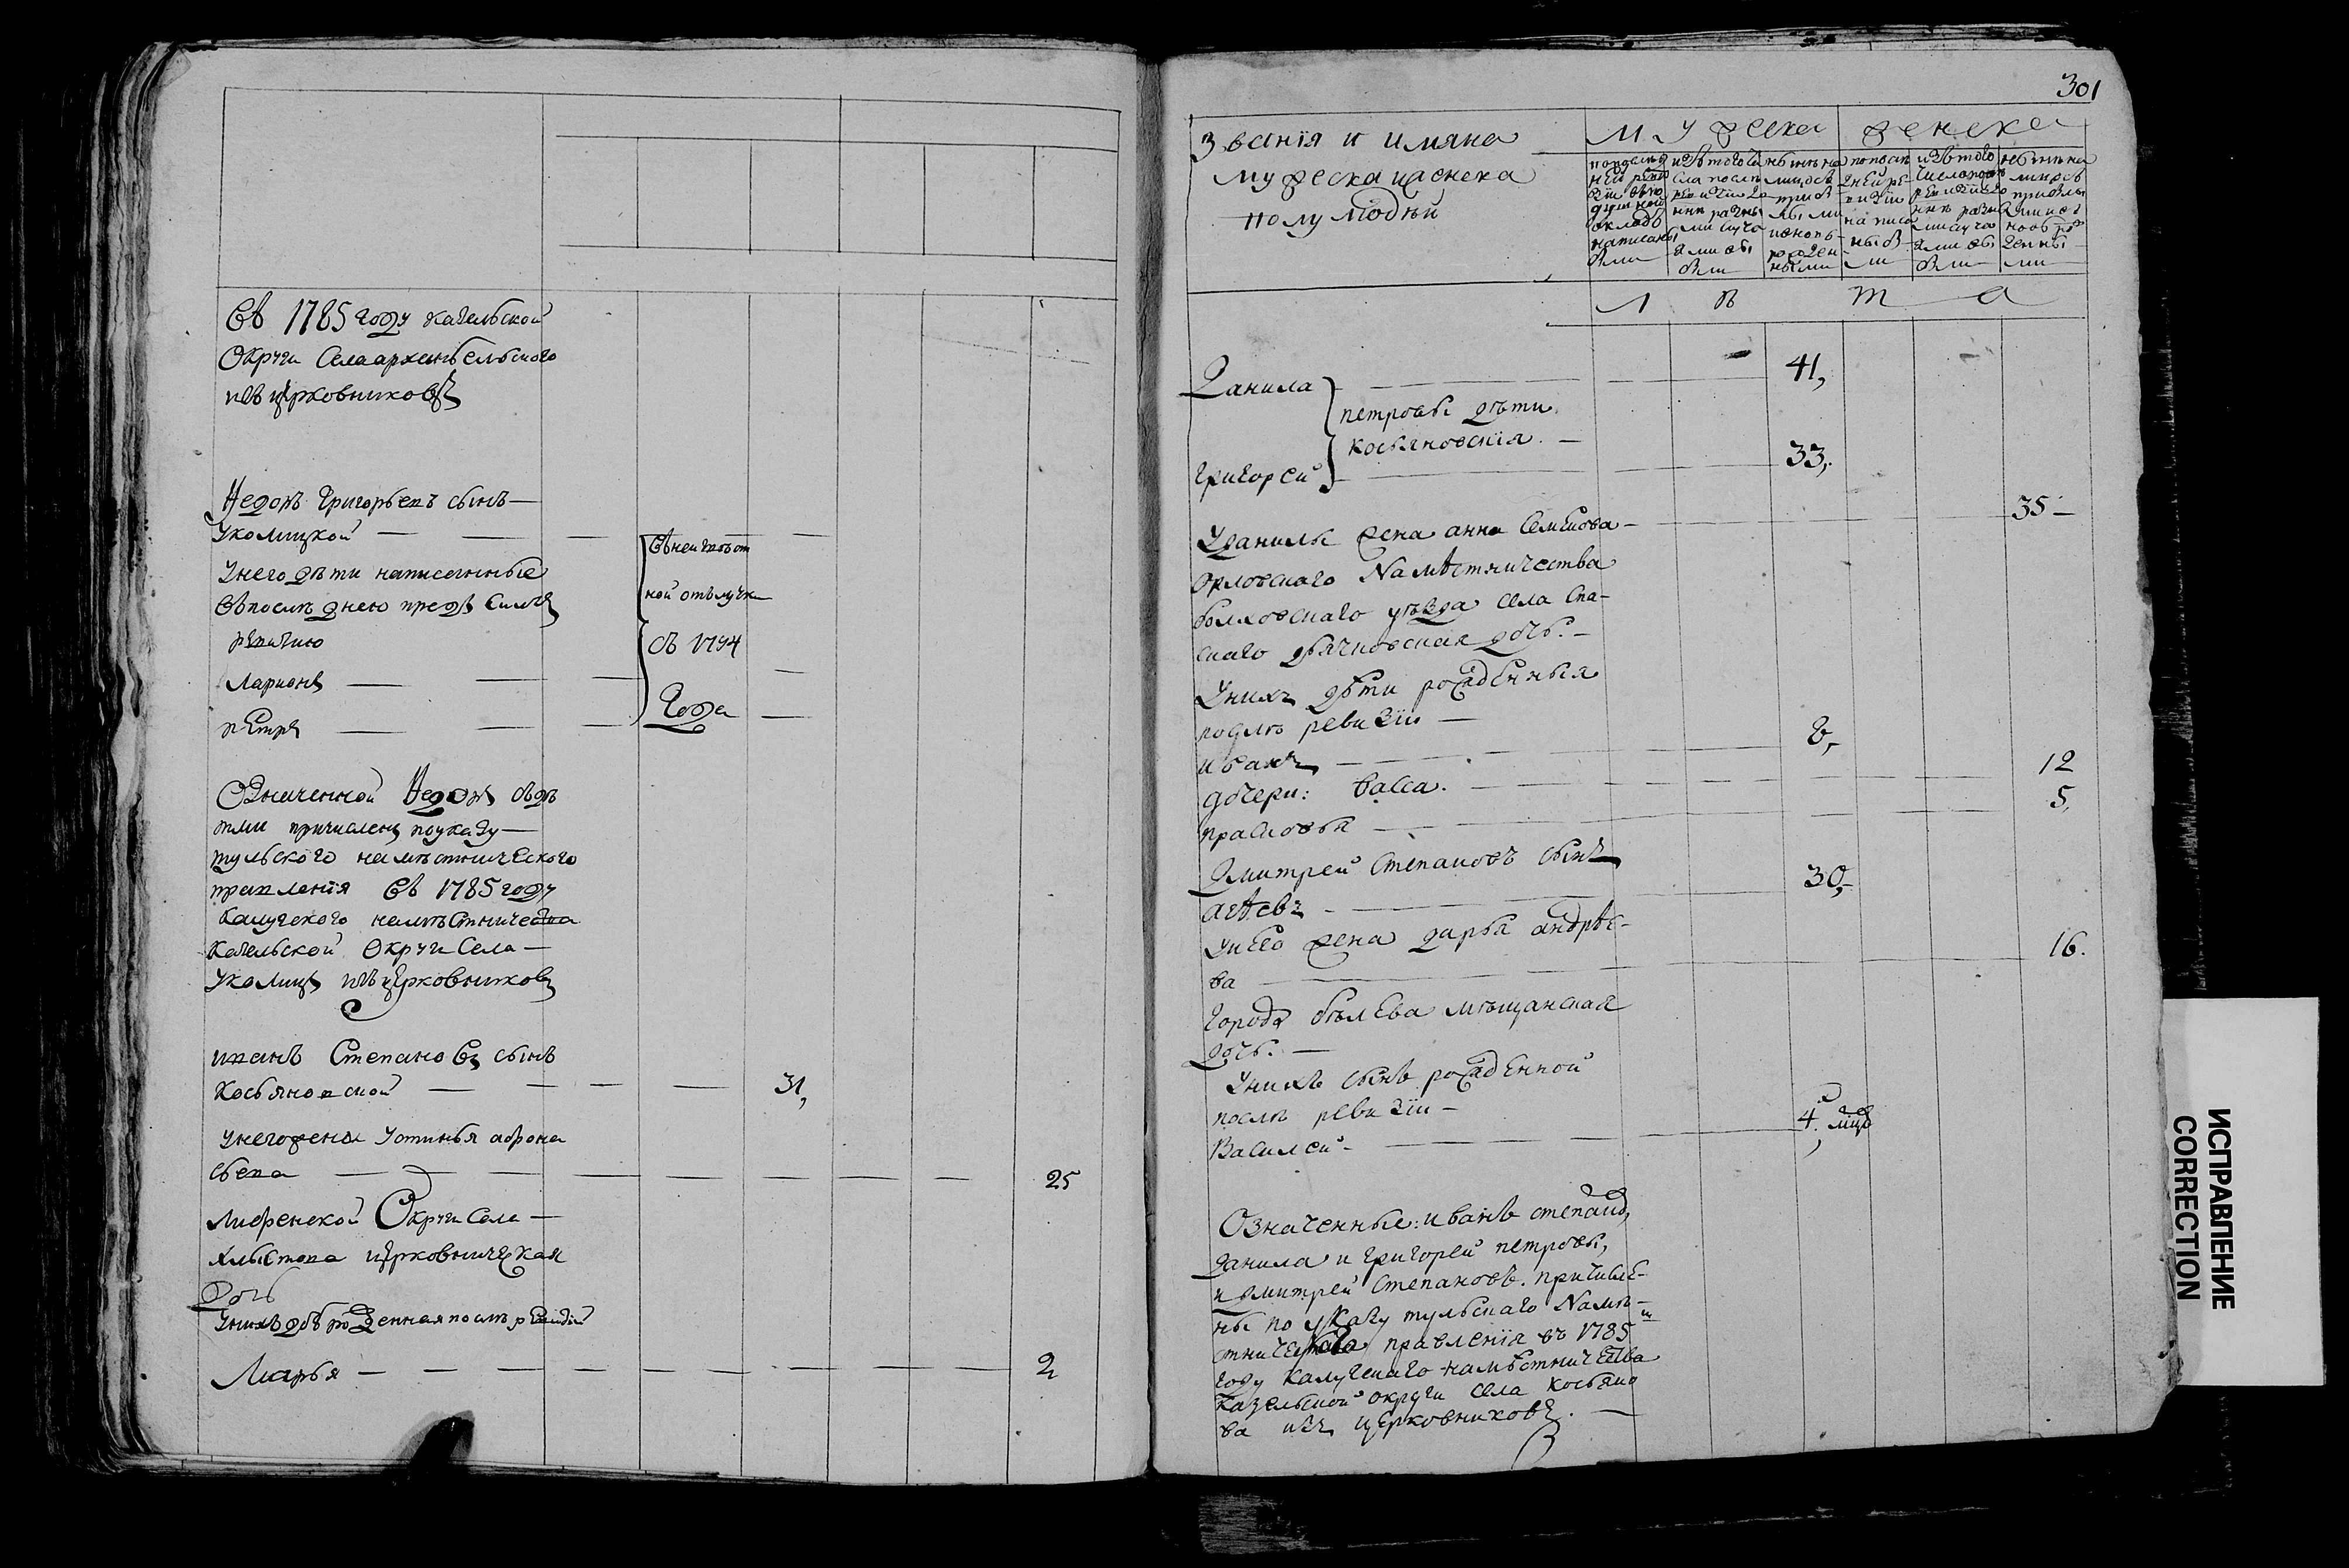 Въ 1785 году казельской
Округи Села архенгельского
изъ церковниковъ
Федоръ Григорьевъ сынъ —
Уколицкой —
Унего дѣти написанные
Въ последнею предъ Симъ
ревизию
Ларионъ —
Петръ —
Въ неизвѣст
ной отълучки
съ 1794
Года
Означенной Федоръ здѣ
тми причисленъ поуказу —
тульского наместнического
правления Въ 1785 году
Калужского наместничества
Казельской Округи Села —
Уколицъ изъ церковниковъ
иванъ Степановъ сынъ
Косьяновской — 31,
Унего жена Устинья афона
сьева — 25
Лифенской Округи Села —
Хлыстова церковническая
Дочь
Унихъ дочь рожденная послѣ ревизии
Марья — 2
301
Звания и имяна
мужеска иженска
полу людѣй
Мужеска женска
последней ревизии въ подушной окладъ написаны были
изъ того числа послѣ ревизии до ныне разными случаями выбыли
ныне на лицо съ прибылыми и новорожденными
по последней ревизии написаны были
изъ того числа послѣ ревизии до ныне разными случаями выбыли
ныне на лицо съ прибылыми и новорожденными
Л ѣ т а
Данила — 41,
петровы дѣти
косьяновския. —
григорей — 33,
Уданилы жена анна Семенова — 35 —
Орловскаго Намѣстничества
болховскаго уѣзда села Спа-
скаго дьячковская дочь. —
Унихъ дѣти рожденныя
послѣ ревизiи —
иванъ — 8,
дочери: васса. — 12
прасковья — 5,
Дмитрей Степановъ сынъ
агѣевъ — 30,
Унево жена дарья андрѣе-
ва — 16.
города бѣлева мѣщанская
дочь. —
Унихъ сынъ рожденной
послѣ ревизiи —
Василей — 4. мцъ
Означенные: иванъ степановъ,
данила и григорей петровы,
и дмитрей Степановъ. причисле-
ны по указу тульскаго Намѣ-
стническаго правления въ 1785 м
году калужскаго намѣстничества
казельской округи села косьяно
ва изъ церковниковъ. —
ИСПРАВЛЕНИЕ
CORRECTION